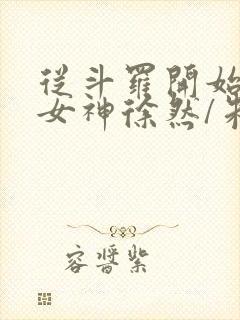 從斗羅開始
女神徐然/朱
容晉紫